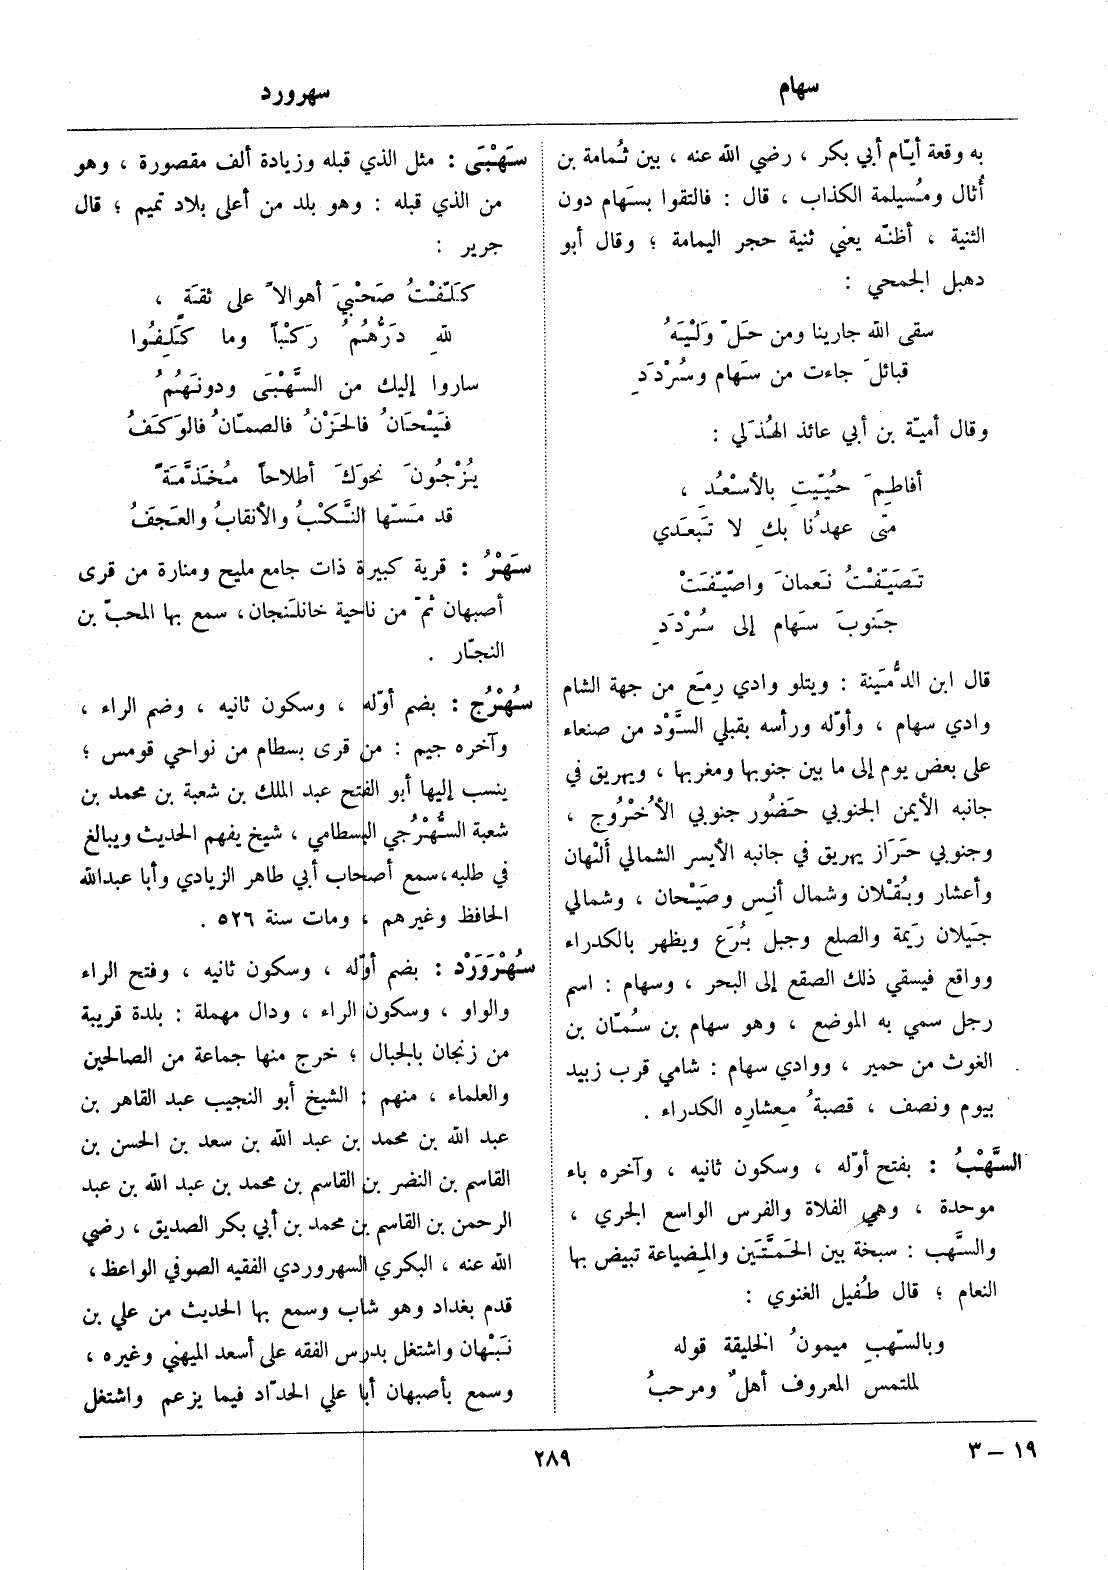 سهام
سهرورد
به وقعة أيّام أبي بكر ، رضي الله عنه ، بين ثُمامة بن
أُثال ومُسيلمة الكذاب ، قال : فالتقوا بسَهام دون
الثنية ، أظنّه يعني ثنية حجر اليمامة ؛ وقال أبو
دهبل الجمحي :
سقى الله جارينا ومن حَلّ وَلْيَهُ
قبائلَ جاءت من سَهام وسُرْدَدِ
وقال أميّة بن أبي عائذ الهُذَلي :
أفاطِمِ حُيّيتِ بالأسْعُدِ ،
متى عهدُنا بكِ لا تَبعَدي
تَصَيّفْتُ نَعمانَ واصّيّفَتْ
جَنوبَ سَهام إلى سُرْدَدِ
قال ابن الدُّمَينة : ويتلو وادي رِمَع من جهة الشام
وادي سهام ، وأوّله ورأسه بقبلي السَّوْد من صنعاء
على بعض يوم إلى ما بين جنوبها ومغربها ، ويهريق في
جانبه الأيمن الجنوبي حَضُور جنوبي الأُخْرُوج ،
وجنوبي حَرَاز يهريق في جانبه الأيسر الشمالي أَلْهان
وأعشار وبُقْلان وشمال أنِس وصَيْحان ، وشمالي
جَيلان رَيمة والصلع وجبل بُرَع ويظهر بالكدراء
وواقع فيسقي ذلك الصقع إلى البحر ، وسهام : اسم
رجل سمي به الموضع ، وهو سهام بن سُمّان بن
الغوث من حمير ، ووادي سهام : شامي قرب زبيد
بيوم ونصف ، قصبةُ مِعشارِه الكدراء .
السَّهْبُ : بفتح أوّله ، وسكون ثانيه ، وآخره باء
موحدة ، وهي الفلاة والفرس الواسع الجري ،
والسَّهب : سبخة بين الحَمَّتَين والمِضياعة تبيض بها
النعام ؛ قال طُفيل الغنوي :
وبالسّهبِ ميمونُ الخليقة قوله
لملتمس المعروف أهلٌ ومرحبُ
سَهْبَى : مثل الذي قبله وزيادة ألف مقصورة ، وهو
من الذي قبله : وهو بلد من أعلى بلاد تميم ؛ قال
جرير :
كَلّفْتُ صَحْبيَ أهوالاً على ثقةٍ ،
للهِ دَرُّهُمُ رَكْباً وما كُلّفُوا
ساروا إليك من السَّهْبَى ودونَهُمُ
فَيْحَانُ فالحَزْنُ فالصمّانُ فالوَكَفُ
يُزْجُونَ نحوَكَ أطلاحاً مُخَذَّمَةً
قد مَسّها النَّكْبُ والأنقابُ والعَجَفُ
سَهْرُ : قرية كبيرة ذات جامع مليح ومنارة من قرى
أصبهان ثمّ من ناحية خانلَنجان، سمع بها المحبّ بن
النجّار .
سُهْرُج : بضم أوّله ، وسكون ثانيه ، وضم الراء ،
وآخره جيم : من قرى بسطام من نواحي قومس ؛
ينسب إليها أبو الفتح عبد الملك بن شعبة بن محمد بن
شعبة السُّهْرُجي البسطامي ، شيخ يفهم الحديث ويبالغ
في طلبه، سمع أصحاب أبي طاهر الزيادي وأبا عبدالله
الحافظ وغيرهم ، ومات سنة ٥٢٦ .
سُهْرَوَرْد : بضم أوّله ، وسكون ثانيه ، وفتح الراء
والواو ، وسكون الراء ، ودال مهملة : بلدة قريبة
من زنجان بالجبال ؛ خرج منها جماعة من الصالحين
والعلماء ، منهم : الشيخ أبو النجيب عبد القاهر بن
عبد الله بن محمد بن عبد الله بن سعد بن الحسن بن
القاسم بن النضر بن القاسم بن محمد بن عبد الله بن عبد
الرحمن بن القاسم بن محمد بن أبي بكر الصديق ، رضي
الله عنه ، البكري السهروردي الفقيه الصوفي الواعظ ،
قدم بغداد وهو شاب وسمع بها الحديث من علي بن
نَبْهان واشتغل بدرس الفقه على أسعد الميهني وغيره ،
وسمع بأصبهان أبا علي الحدّاد فيما يزعم واشتغل
١٩ – ٣
٢٨٩